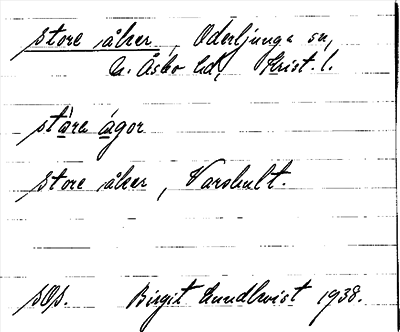 store åker, Oderljunga sn,
N. Åsbo hd, Krist. l.
stàre ágor
store åker, Varshult.
sOs. Birgit Lundkvist 1938.